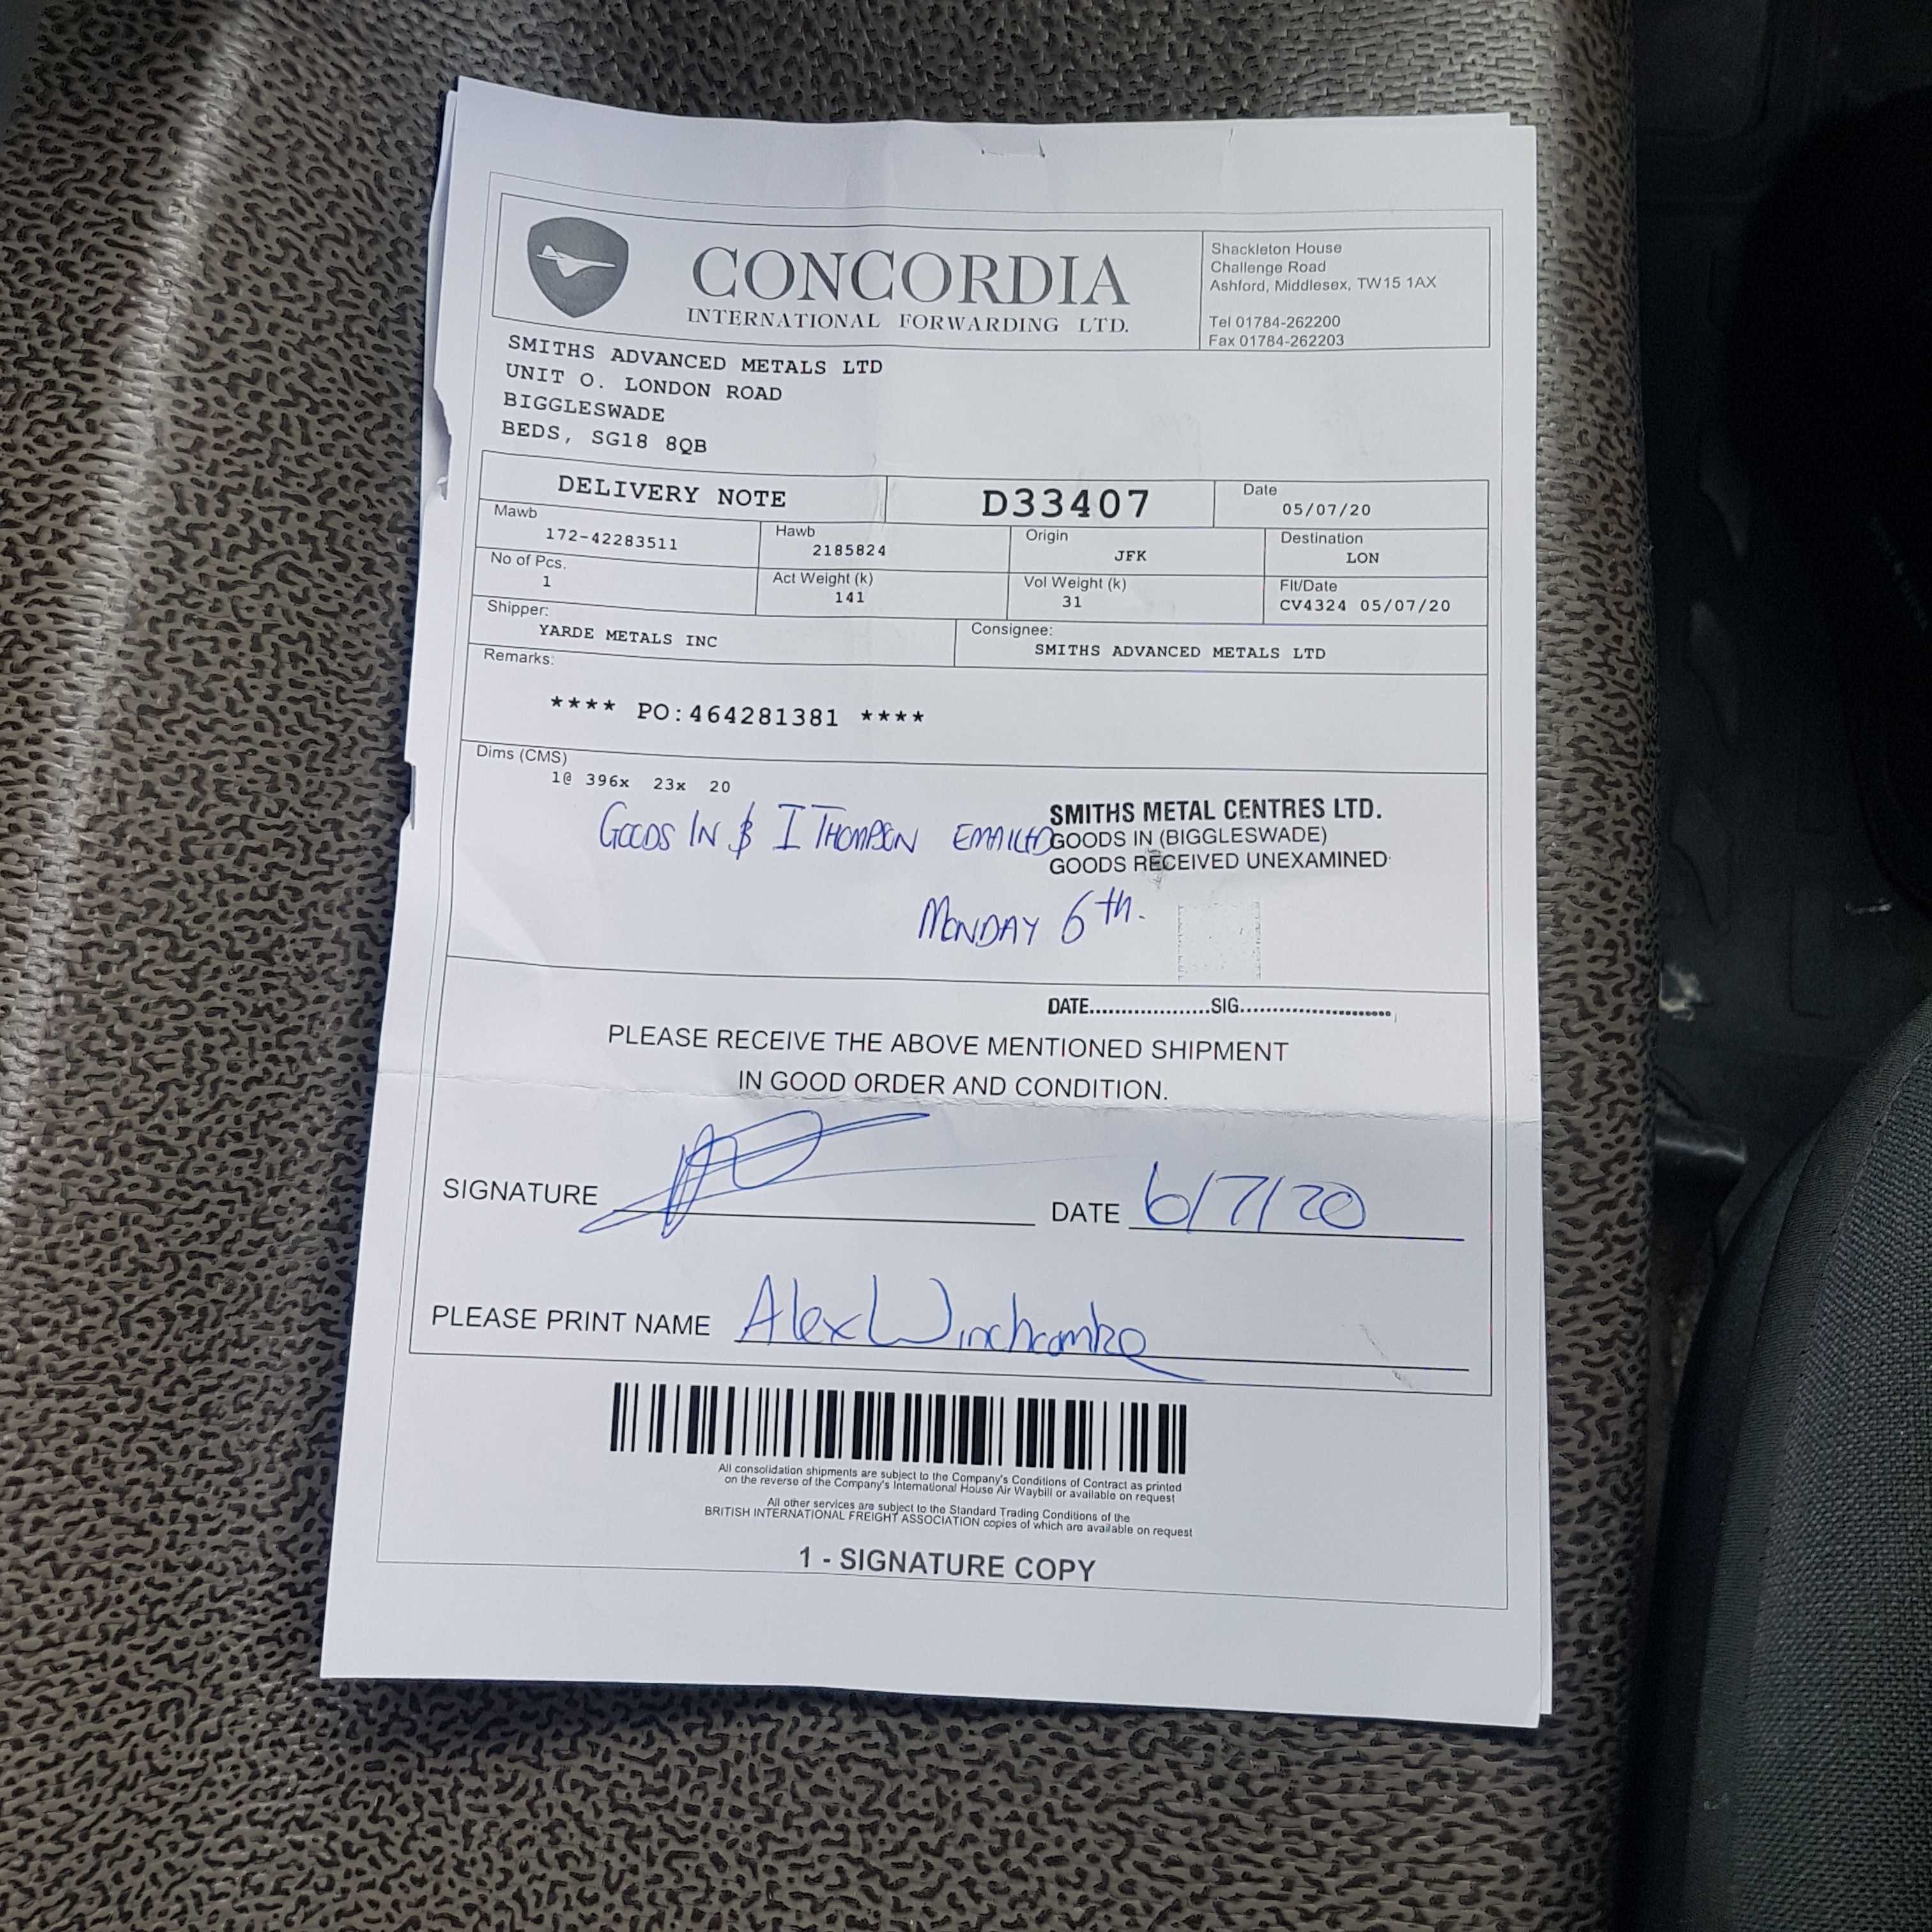 CONCORDIA
INTERNATIONAL FORWARDING LTD.
Shackleton House
Challenge Road
Ashford, Middlesex, TW15 1AX
Tel 01784-262200
Fax 01784-262203
SMITHS ADVANCED METALS LTD
UNIT O. LONDON ROAD
BIGGLESWADE
BEDS, SG18 8QB
DELIVERY NOTE D33407 Date 05/07/20
Mawb 172-42283511 Hawb 2185824 Origin JFK Destination LON
No of Pcs. 1 Act Weight (k) 141 Vol Weight (k) 31 Flt/Date CV4324 05/07/20
Shipper: YARDE METALS INC Consignee: SMITHS ADVANCED METALS LTD
Remarks:
**** PO:464281381 ****
Dims (CMS)
1@ 396x 23x 20
GOODS IN & I THOMPSON EMAILED
SMITHS METAL CENTRES LTD.
GOODS IN (BIGGLESWADE)
GOODS RECEIVED UNEXAMINED
MONDAY 6th.
DATE....................SIG.........................
PLEASE RECEIVE THE ABOVE MENTIONED SHIPMENT
IN GOOD ORDER AND CONDITION.
SIGNATURE DATE 6/7/20
PLEASE PRINT NAME Alex Winchcombe
All consolidation shipments are subject to the Company's Conditions of Contract as printed
on the reverse of the Company's International House Air Waybill or available on request
All other services are subject to the Standard Trading Conditions of the
BRITISH INTERNATIONAL FREIGHT ASSOCIATION copies of which are available on request
1 - SIGNATURE COPY